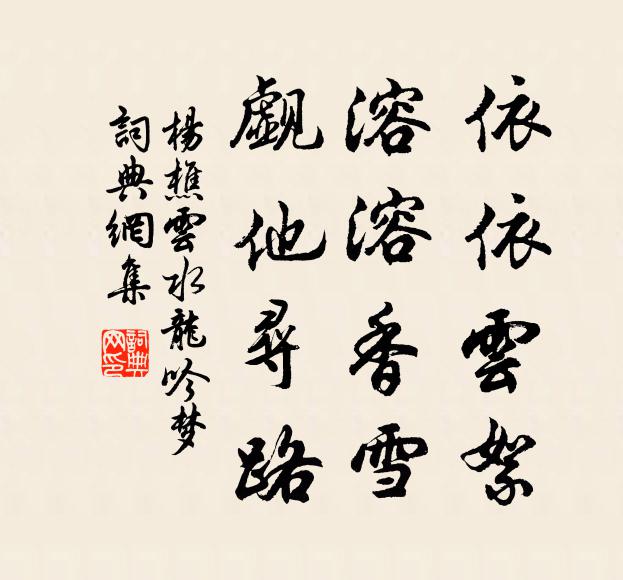 依依雲絮
溶溶香雪
覷他尋路
楊樵雲水龍吟梦
詞典網集
詞典网印